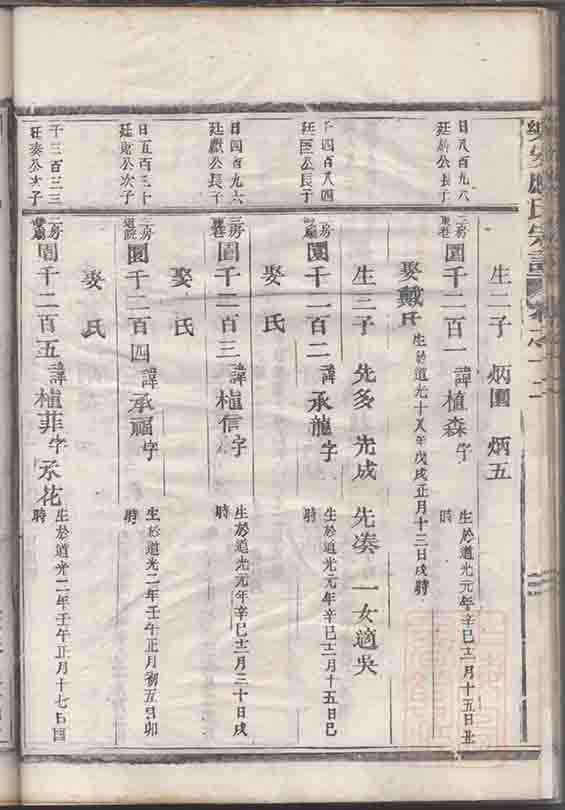 生二子 炳園 炳五
日八百九八
廷 公長子
二房
園千二百一 諱植森字 生於道光元年辛巳十二月十五日丑時
娶戴氏 生於道光十八年戊戌正月十三日戌時
生三子 先多 先成 先凑 一女適吳
千四百八四
廷匡公長子
二房
園千二百二 諱承龍字 生於道光元年辛巳十二月十五日巳時
娶 氏
日四百九六
廷獻公長子
二房
園千二百三 諱植信字 生於道光元年辛巳十二月三十日戌時
娶 氏
日五百三十
廷 公次子
二房
園千二百四 諱承福字 生於道光二年壬午正月初五日卯時
娶 氏
千三百三三
廷奏公次子
二房
園千二百五 諱植菲字承花 生於道光二年壬午正月十七日 時